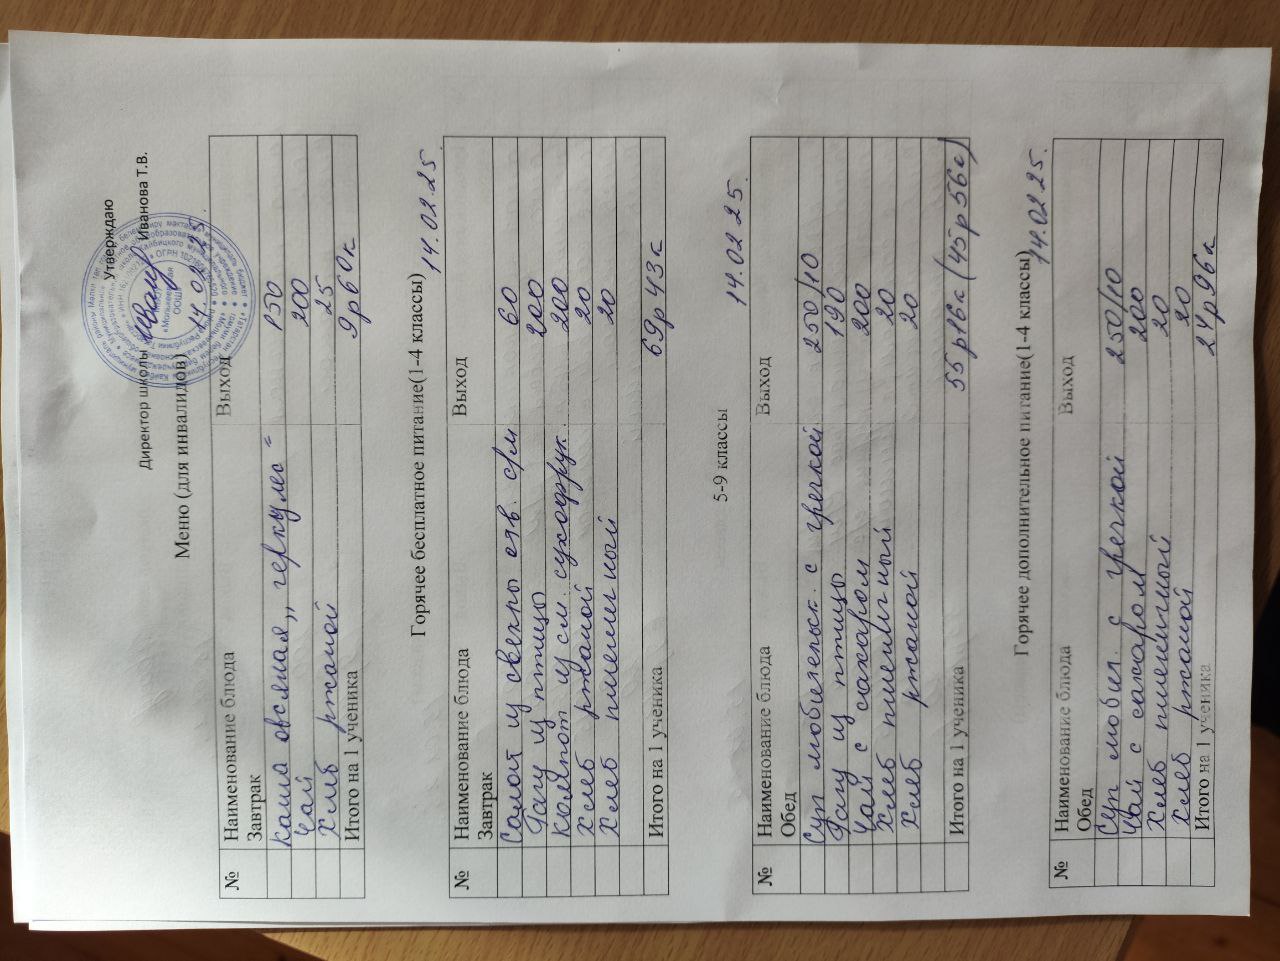 Утверждаю
Директор школы Иванова Т.В.
14.02.25.
Меню (для инвалидов)
№ Наименование блюда Выход
Завтрак
Каша овсяная „геркулес" 150
Чай 200
Хлеб ржаной 25
Итого на 1 ученика 9р60к
Горячее бесплатное питание(1-4 классы)
14.02.25
№ Наименование блюда Выход
Завтрак
Салат из свеклы отв. с/м 60
Рагу из птицы 200
Компот из см. сухофрук. 200
Хлеб ржаной 20
Хлеб пшеничный 20
Итого на 1 ученика 69р 43к
5-9 классы
14.02 25.
№ Наименование блюда Выход
Обед
Суп любительск. с гречкой 250/10
Рагу из птицы 190
Чай с сахаром 200
Хлеб пшеничный 20
Хлеб ржаной 20
Итого на 1 ученика 55р16к (45р56к)
Горячее дополнительное питание(1-4 классы)
14.02 25.
№ Наименование блюда Выход
Обед
Суп любит. с гречкой 250/10
Чай с сахаром 200
Хлеб пшеничный 20
Хлеб ржаной 20
Итого на 1 ученика 24р96к